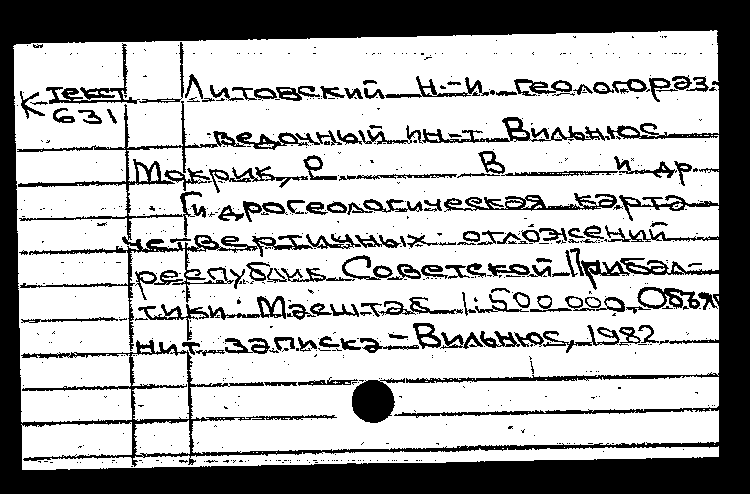 К текст Литовский н.-и. геологораз-
631
ведочный ин-т Вильнюс
Мокрик, Р В и др
Гидрогеологическая карта
четвертичных отложений
республик Советской Прибал-
тики: Масштаб 1:500 000. Объяс
нит записка - Вильнюс, 1982